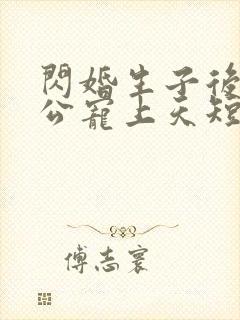 閃婚生子後
公寵上天短
傅志寰